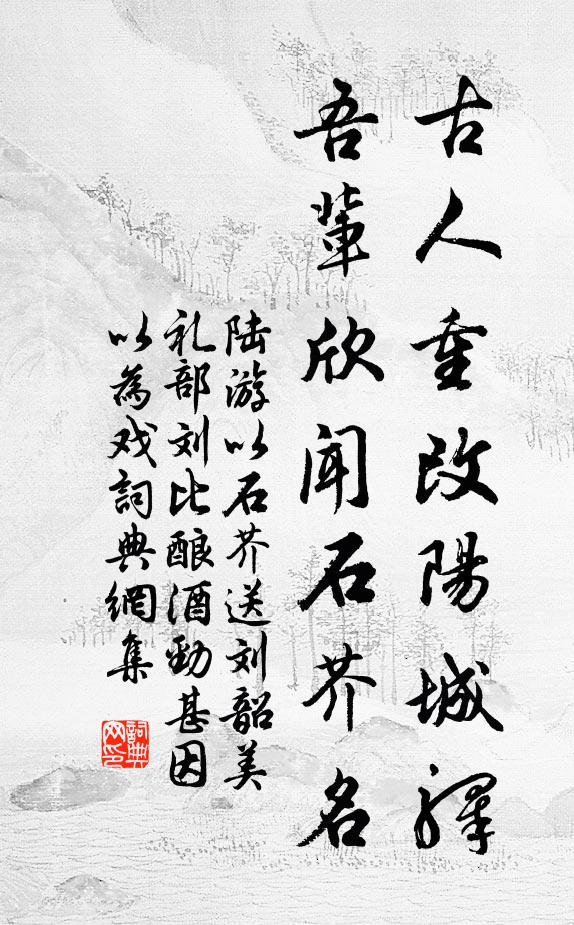 古人重改陽城驛
吾輩欣聞石芥名
陆游以石芥送刘韶美
礼部刘比酿酒勁甚因
以為戏詞典網集
詞典
网印